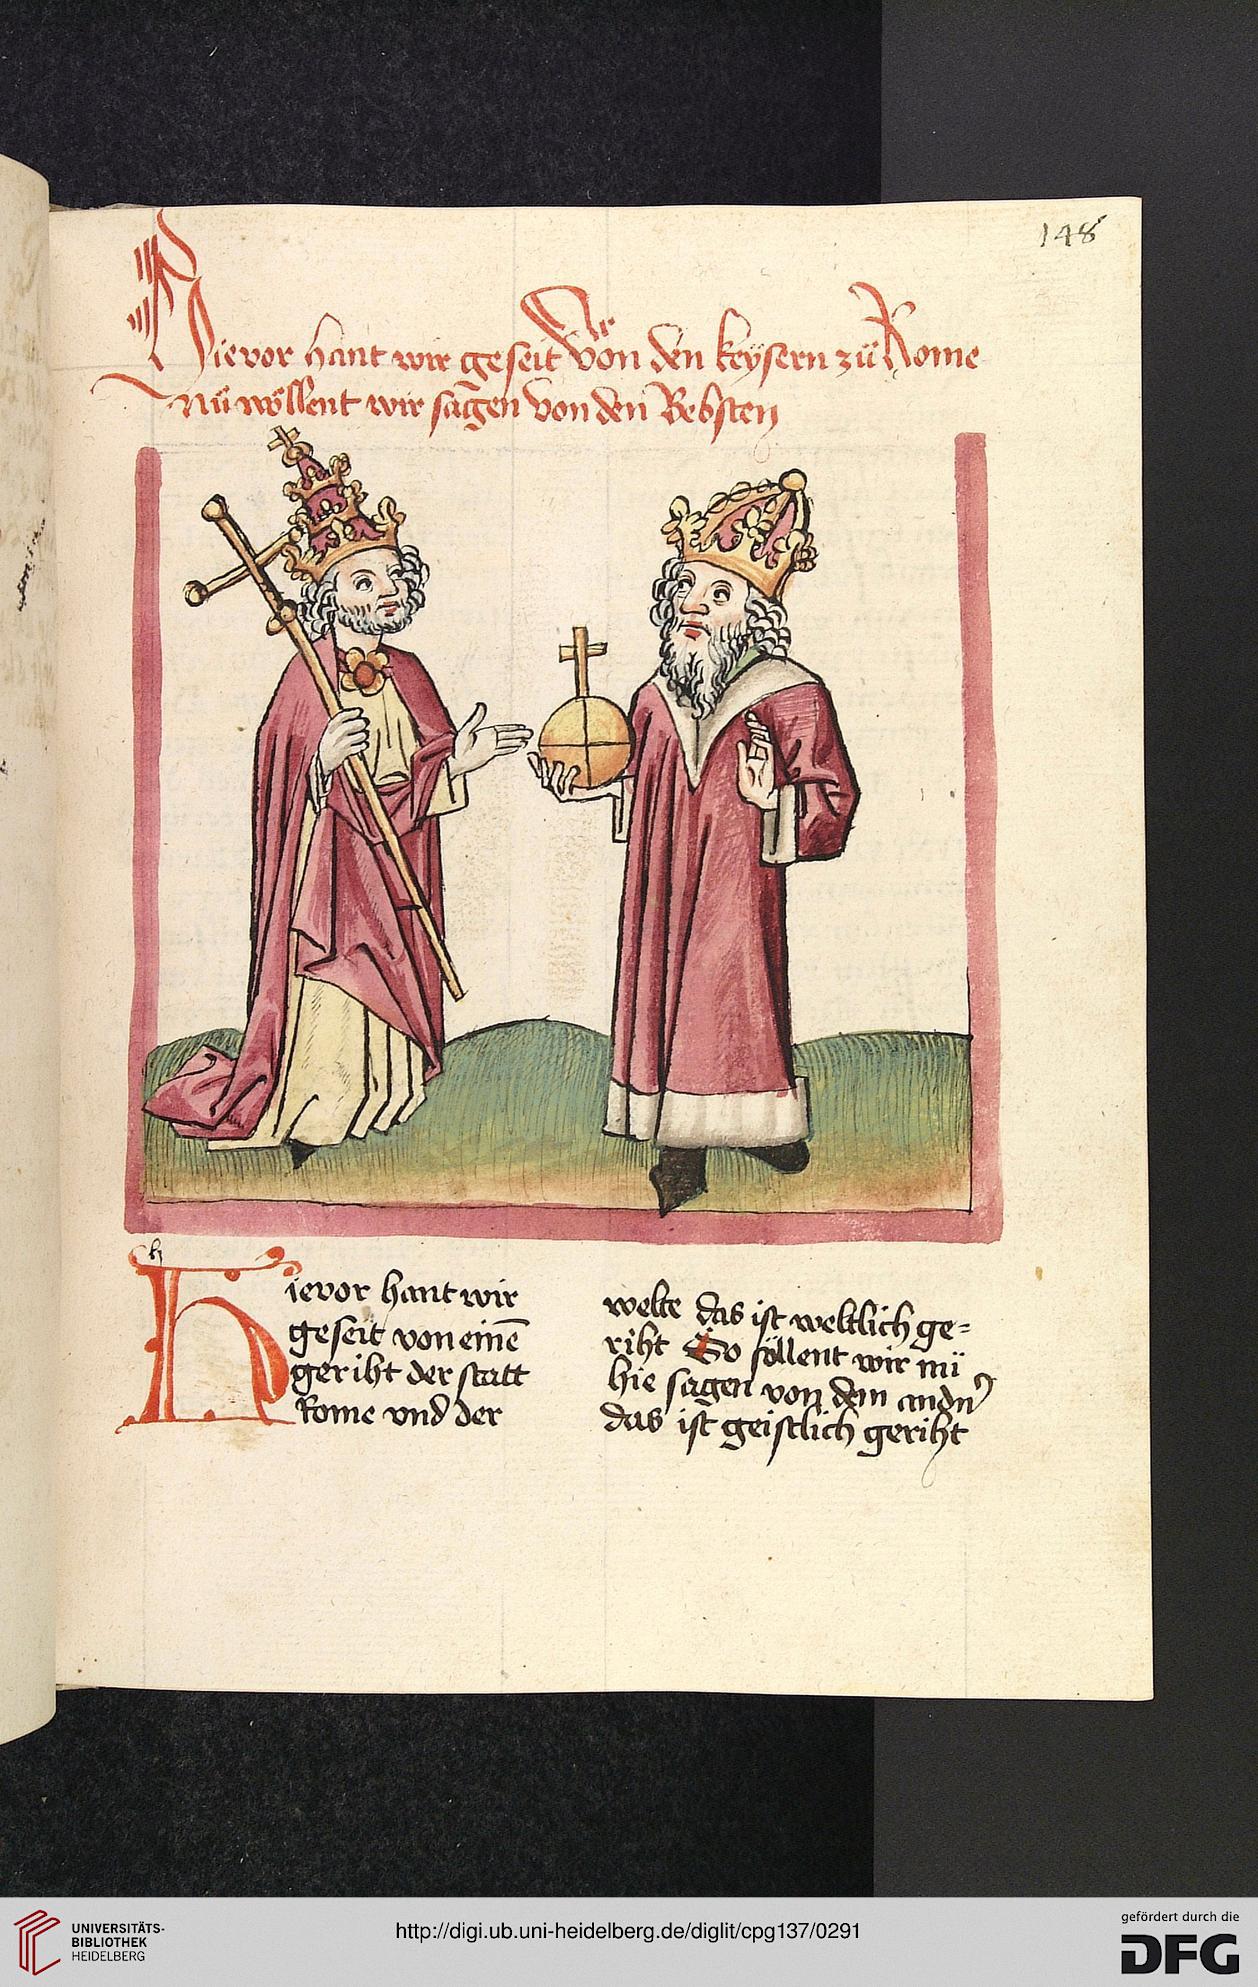 148
Hievor hant wir geseit von den keysern zů Rome
Nů wöllent wir sagen von den Bebsten
h
Hievor hant wir
geseit von einē
geriht der statt
Rome vnd der
welte das ist weltlich ge=
riht So söllent wir nü
hie sagen von dem andn
das ist geistlich geriht
UNIVERSITÄTS-
BIBLIOTHEK
HEIDELBERG
http://digi.ub.uni-heidelberg.de/diglit/cpg137/0291
gefördert durch die
DFG